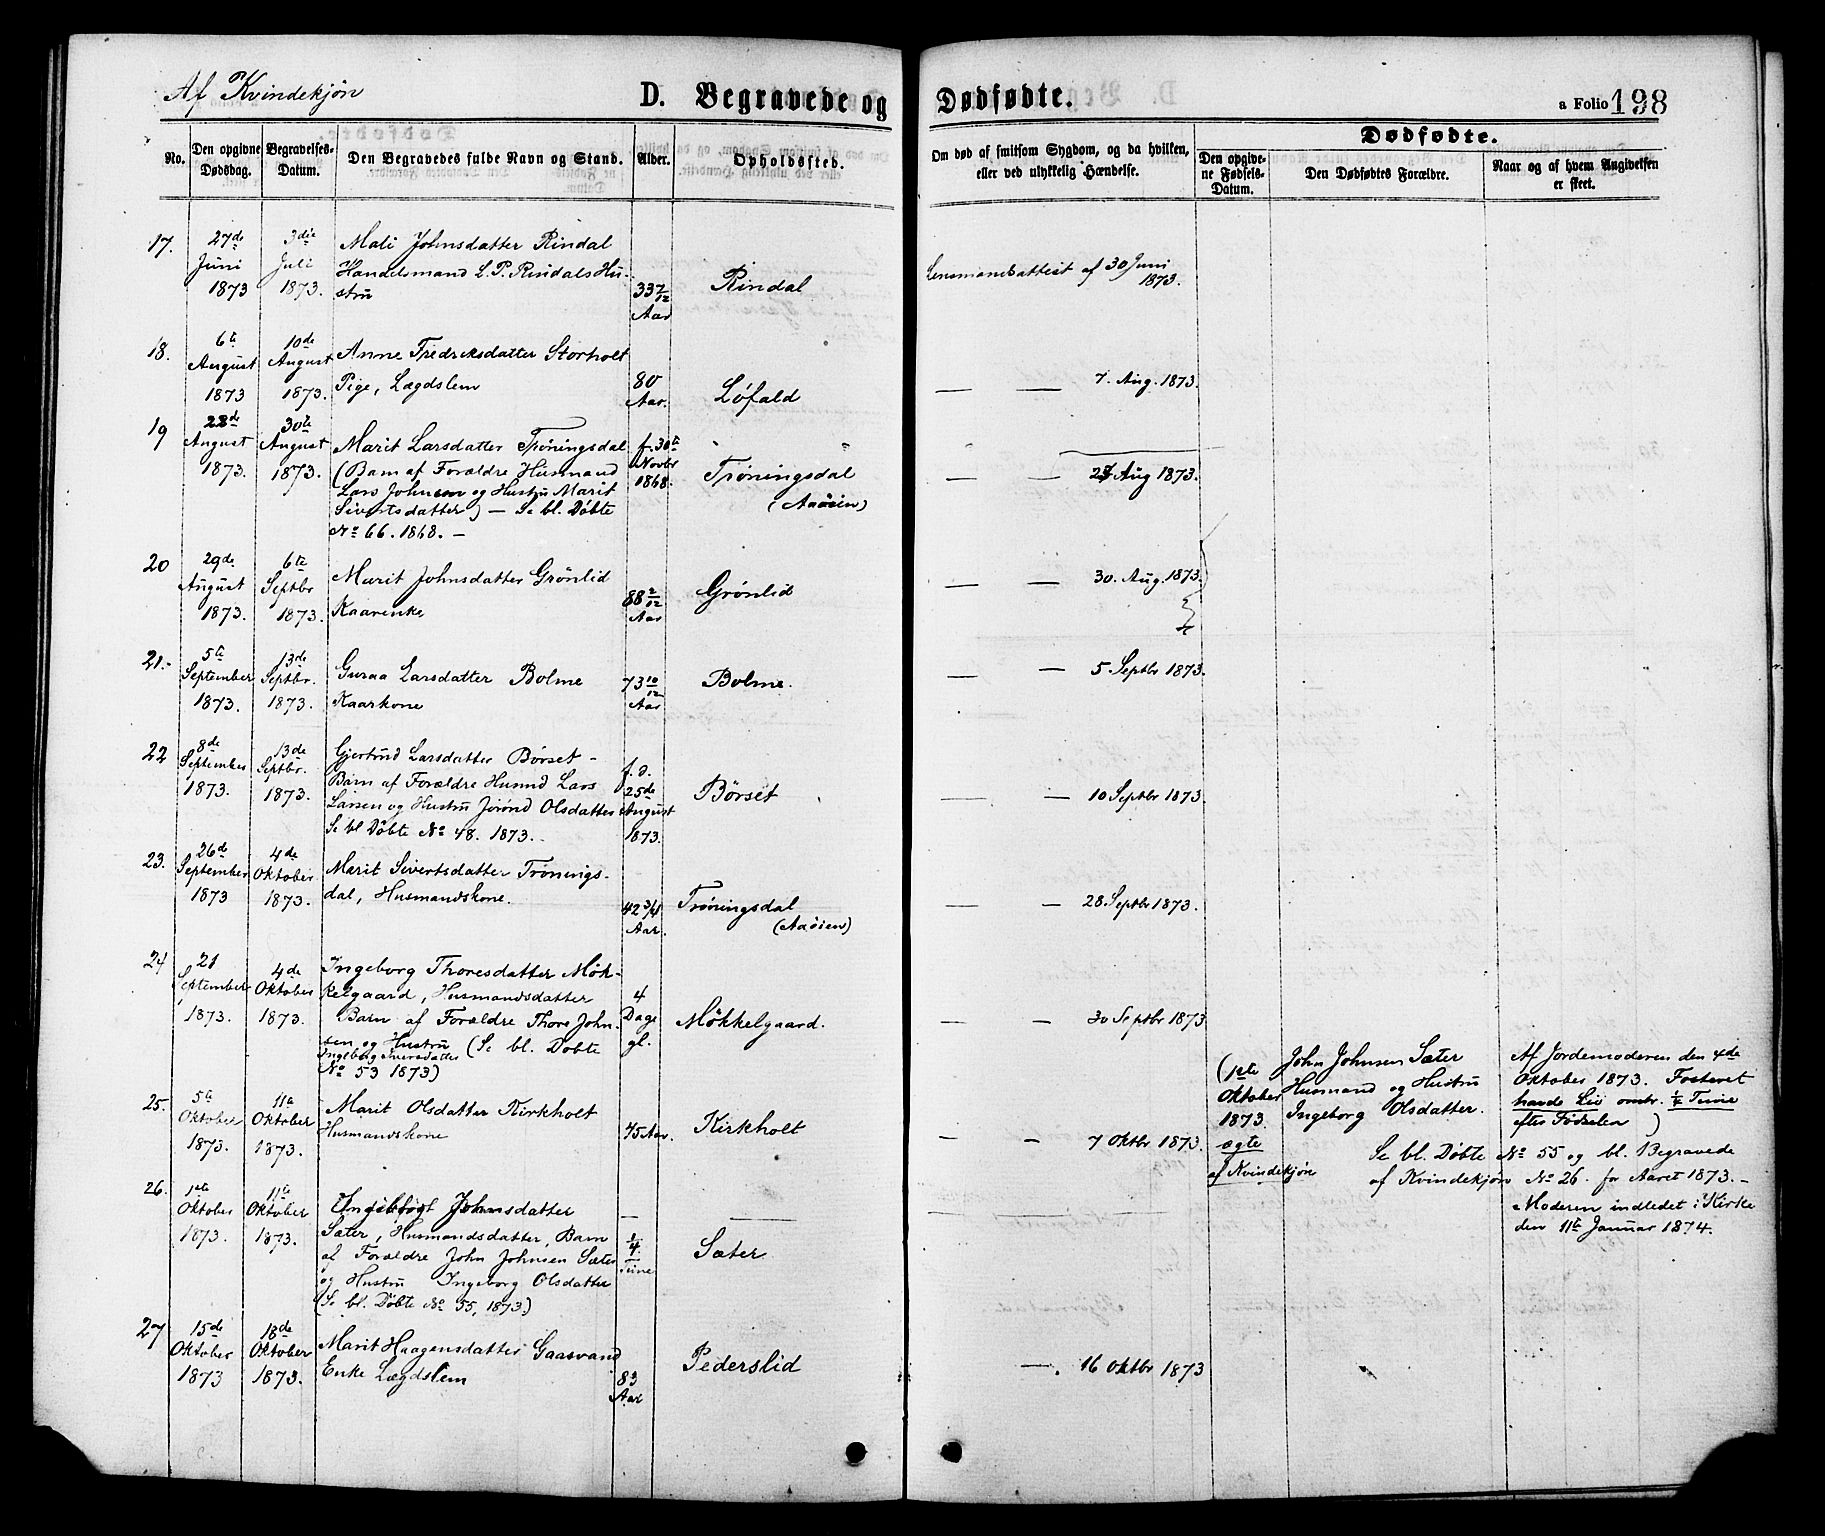 Af Kvindekjøn
D. Begravede og Dødfødte.
a Folio 198
No.
Den opgivne Dødsdag.
Begravelses-Datum.
Den Begravedes fulde Navn og Stand.
Alder.
Opholdssted.
Om død af smitsom Sygdom, og da hvilken,
eller ved ulykkelig Hændelse.
Dødfødte.
Den opgive-
ne Fødsels-
Datum.
Den Dødfødtes Forældre.
Naar og af hvem Angivelsen
er skeet.
17.
27de
Juni
1873
3die
Juli
1873.
Mali Johnsdatter Rindal
Handelsmand L. P. Rindals Hu-
stru
33 7/12
Aar
Rindal
Lensmandsattest af 30 Juni
1873.
18.
6te
August
1873
10de
August
1873.
Anne Fredriksdatter Storholt
Pige, Lægdslem
80
Aar.
Løfald
— — 7. Aug. 1873.
19
28de
August
1873.
30te
August
1873.
Marit Larsdatter Trøningsdal
(Barn af Forældre Husmand
Lars Johnsen og Hustru Marit
Sivertsdatter) — Se bl. Døbte
No 66. 1868. —
f. 30te
Novbr
1868.
Trøningsdal
(Aaøien)
— — 28 Aug 1873.
20
29de
August
1873.
6te
Septbr
1873.
Marit Johnsdatter Grønlid
Kaarenke
88 2/12
Aar
Grønlid
— — 30. Aug. 1873.
21.-
5te
September
1873.
13de
Septbr.
1873.
Guraa Larsdatter Bolme
Kaarkone
73 10/12
Aar
Bolme.
— — 5. Septbr 1873.
22
8de
September
1873.
13de
Septbr.
1873.
Gjertrud Larsdatter Børset -
Barn af Forældre Husmd Lars
Larsen og Hustru Jorønd Olsdatter
Se bl Døbte No 48. 1873.
f. d.
25de
August
1873.
Børset
— — 10 Septbr 1873.
23.
26de
September
1873
4de
Oktober
1873.
Marit Sivertsdatter Trønings-
dal, Husmandskone.
42 3/4
Aar.
Trøningsdal
(Aaøien)
— — 28. Septbr 1873.
24
21
September
1873.
4de
Oktober
1873.
Ingeborg Thoresdatter Møk-
kelgaard, Husmandsdatter
Barn af Forældre Thore John-
sen og Hustru (Se bl. Døbte
Ingeborg Iversdatter
No 53 1873)
4
Dage
gl.
Møkkelgaard.
— — 30 Septbr 1873
25.
5te
Oktober
1873.
11te
Oktober
1873.
Marit Olsdatter Kirkholt
Husmandskone
75 Aar.
Kirkholt
— — 7 Oktbr 1873.
(1ste
Oktober
1873.
ægte
af Kvindekjøn
John Johnsen Sæter
Husmand og Hustru
Ingeborg Olsdatter.
Af Jordemoderen den 4de
Oktober 1873. Fosteret
havde Liv omtr. 1/4 Time
efter Fødselen)
Se bl. Døbte No 55 og bl. Begravede
af Kvindekjøn No 26 for Aaret 1873. —
Moderen indledet i Kirke
den 11te Januar 1874.
26.
1ste
Oktober
1873.
11te
Oktober
1873.
Johnsdatter
Sæter, Husmandsdatter, Barn
af Forældre John Johnsen Sæter
og Hustru Ingeborg Olsdatter
(Se bl. Døbte No 55, 1873)
1/4
Time
Sæter
27
15de
Oktober
1873
18de
Oktober
1873.
Marit Haagensdatter Gaasvand
Enke Lægdslem
83
Aar
Pederslid
— 16 Oktbr 1873